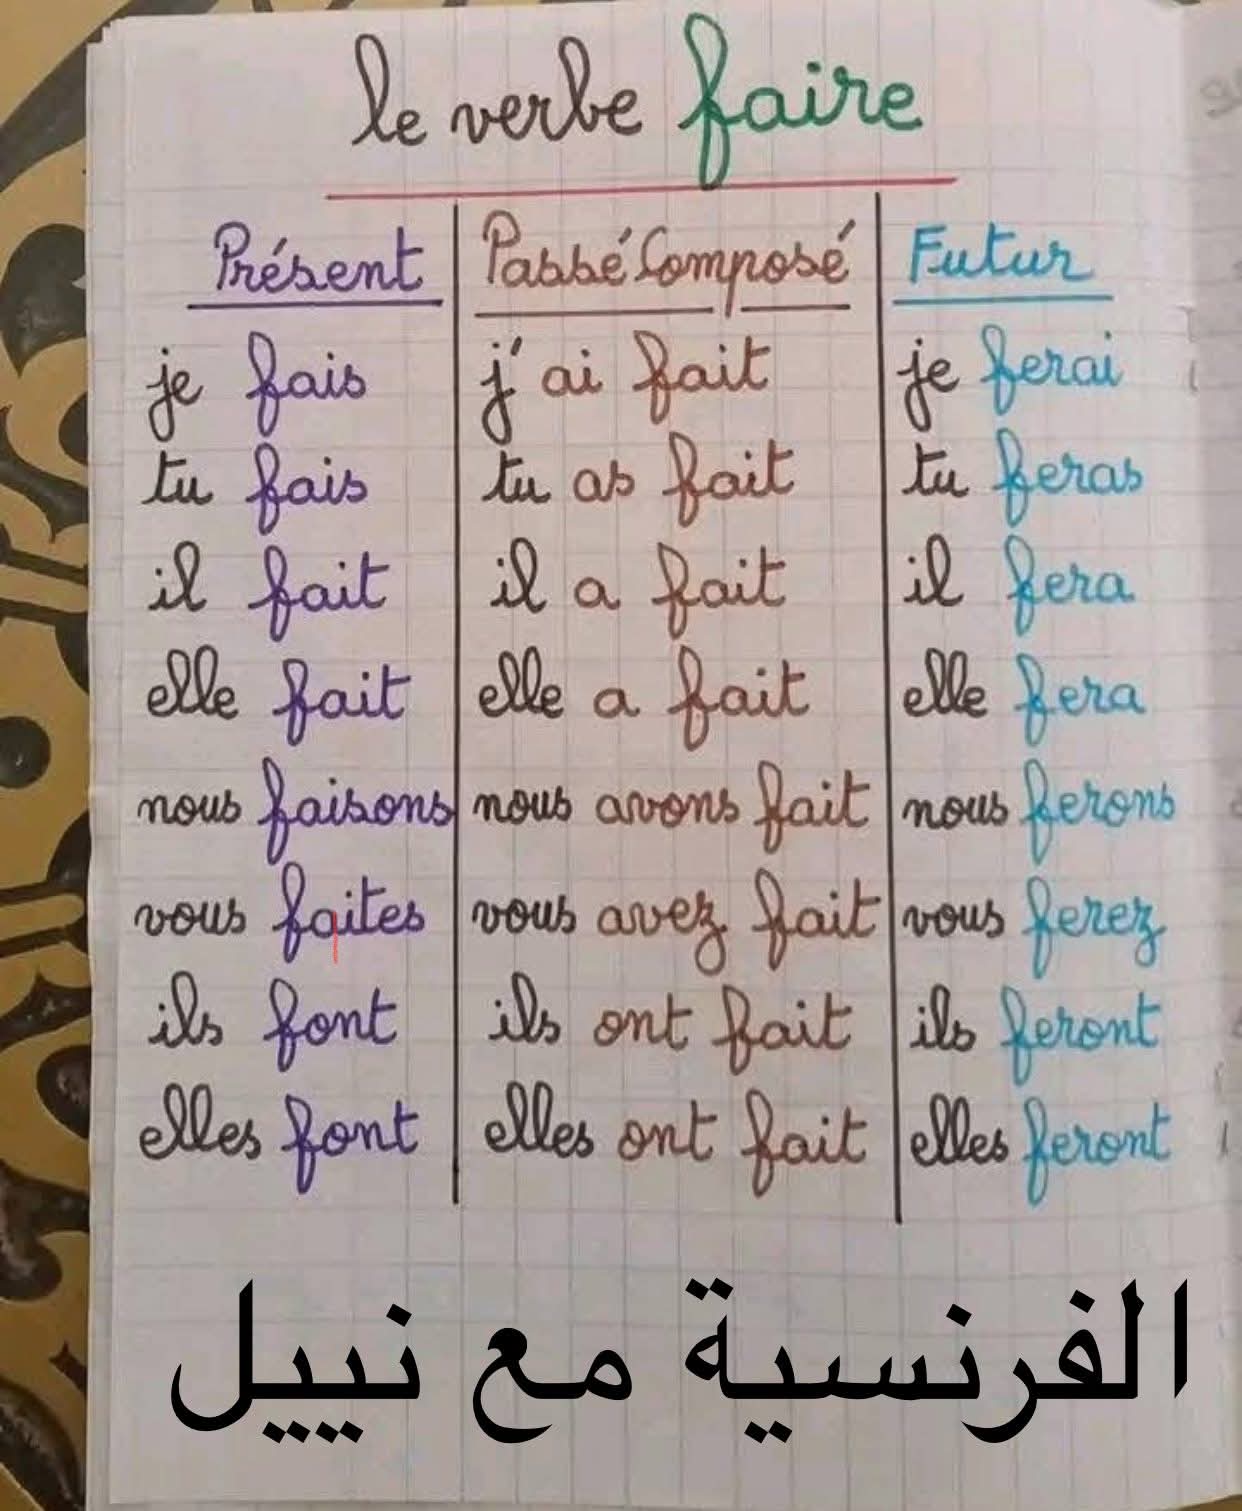 le verbe faire
Présent Passé Composé Futur
je fais j'ai fait je ferai
tu fais tu as fait tu feras
il fait il a fait il fera
elle fait elle a fait elle fera
nous faisons nous avons fait nous ferons
vous faites vous avez fait vous ferez
ils font ils ont fait ils feront
elles font elles ont fait elles feront
الفرنسية مع نييل